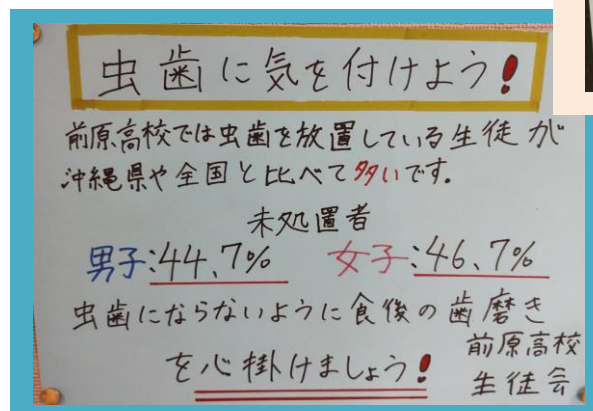 虫歯に気を付けよう!
前原高校では虫歯を放置している生徒が
沖縄県や全国と比べて多いです。
未処置者
男子:44、7% 女子:46、7%
虫歯にならないように食後の歯磨き
を心掛けましょう!
前原高校
生徒会